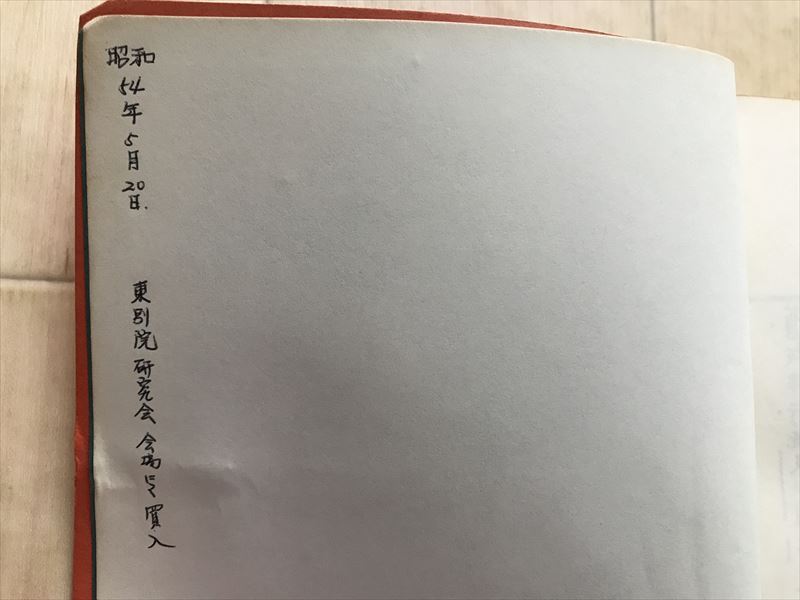 昭和54年5月20日.
東別院研究会会場にて買入